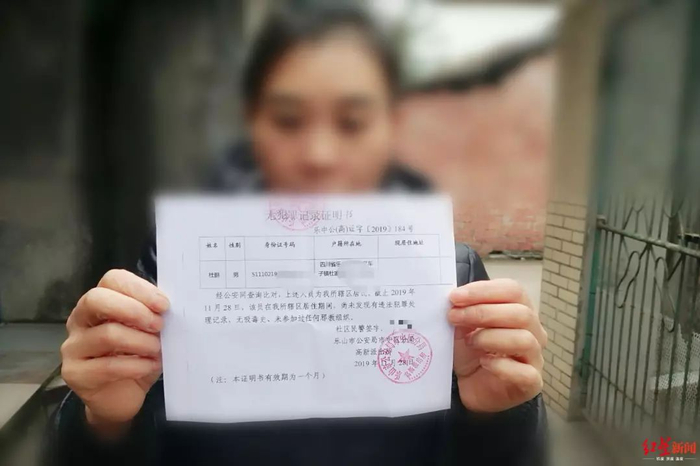 未犯罪记录证明书
乐中公(高)证字〔2019〕184号
姓名 性别 身份证号码 户籍所在地 现居住地址
四川省
51110219
经公安网查询比对,上述人员为我所辖区居民,截止2019年
11月28日,该员在我所辖区居住期间,尚未发现有违法犯罪处
理记录,无吸毒史,未参加过任何邪教组织。
社区民警签字:
乐山市公安局市中区分局
高新派出所
2019年11月28日
(注:本证明书有效期为一个月)
红星新闻